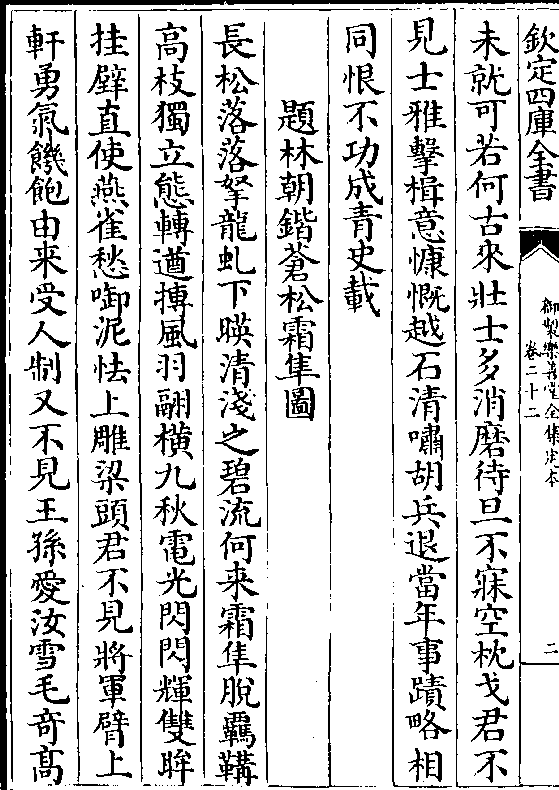 欽定四庫全書
御製樂善堂全集定本
卷二十二
二
未就可若何古來壯士多消磨待旦不寐空枕戈君不
見士雅擊楫意慷慨越石清嘯胡兵退當年事蹟略相
同恨不功成青史載
題林朝鍇蒼松霜隼圖
長松落落拏龍虬下暎清淺之碧流何来霜隼脫羈鞲
高枝獨立態轉遒摶風羽翮橫九秋電光閃閃輝雙眸
挂壁直使燕雀愁啣泥怯上雕梁頭君不見將軍臂上
軒勇氣饑飽由来受人制又不見王孫愛汝雪毛竒髙